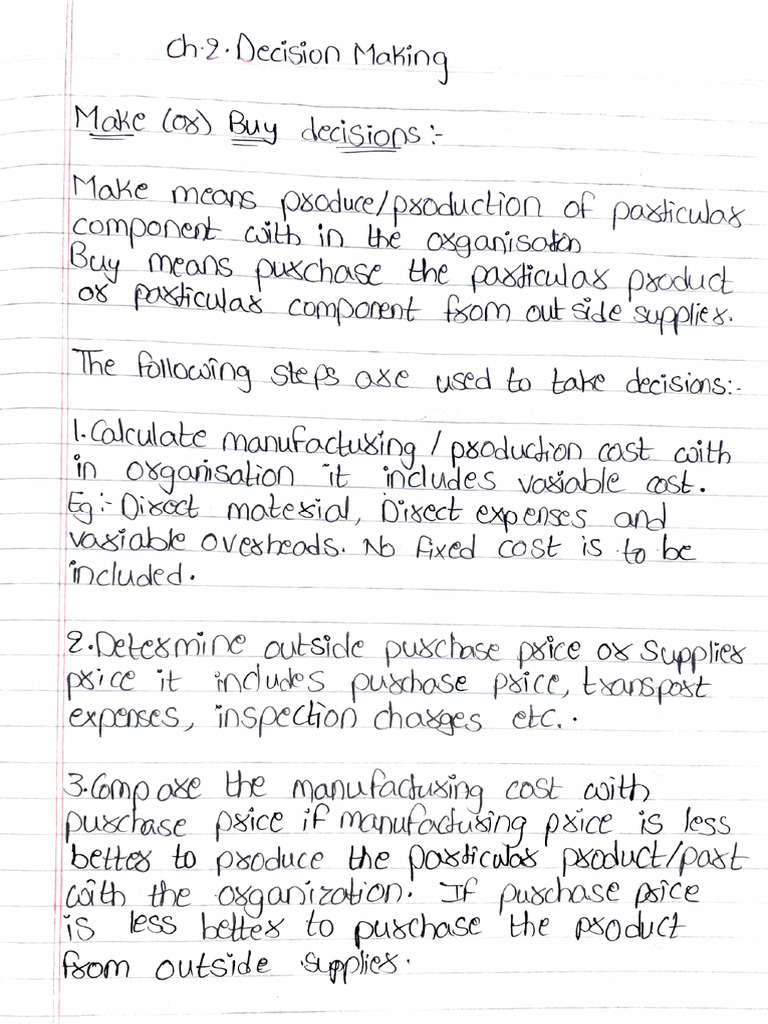 Ch.2. Decision Making
Make (or) Buy decisions:-
Make means produce/production of particular
component with in the organisation
Buy means purchase the particular product
or particular component from out side supplier.
The following steps are used to take decisions:-
1. Calculate manufacturing / production cost with
in organisation it includes variable cost.
Eg:- Direct material, Direct expenses and
variable overheads. No fixed cost is to be
included.
2. Determine outside purchase price or Supplier
price it includes purchase price, transport
expenses, inspection charges etc..
3. Compare the manufacturing cost with
purchase price if manufacturing price is less
better to produce the particular product/part
with the organization. If purchase price
is less better to purchase the product
from outside supplier.